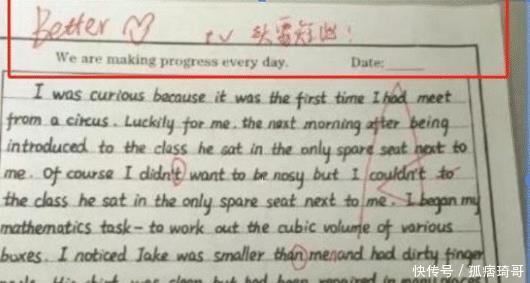 Better
We are making progress every day. Date:
I was curious because it was the first time I had meet
from a circus. Luckily for me, the next morning after being
introduced to the class he sat in the only spare seat next to
me. Of course I didn't want to be nosy but I couldn't to
the class he sat in the only spare seat next to me. I began my
mathematics task - to work out the cubic volume of various
boxes. I noticed Jake was smaller than men and had dirty finger
快传号 / 孤痞琦哥